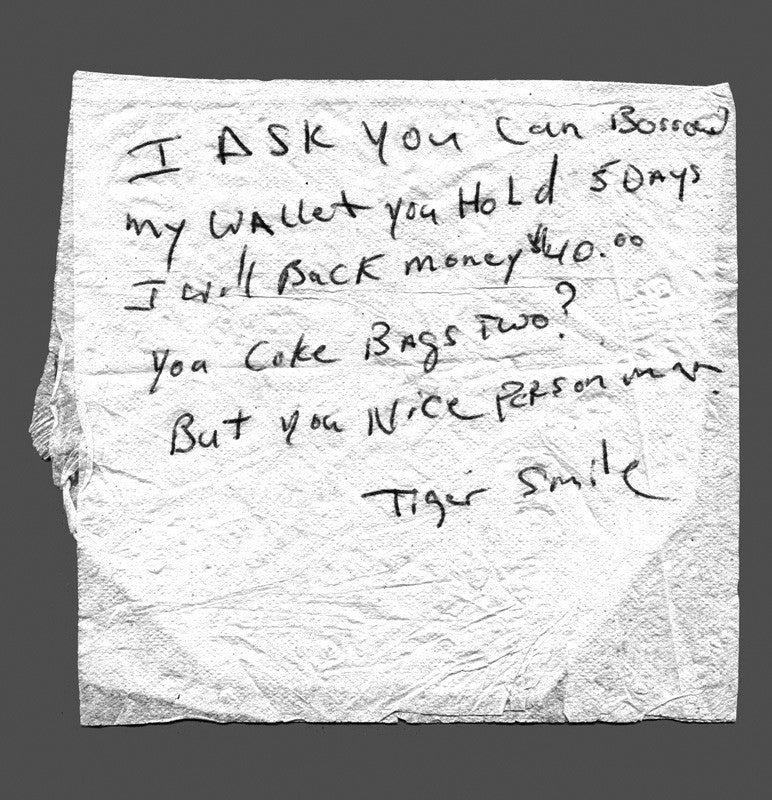 I ASK you Can Borrow
my WALLet you HoLd 5 DAys
I will BacK money $40.00
you Coke BAgs Two?
But you Nice PERson man.
Tiger Smile